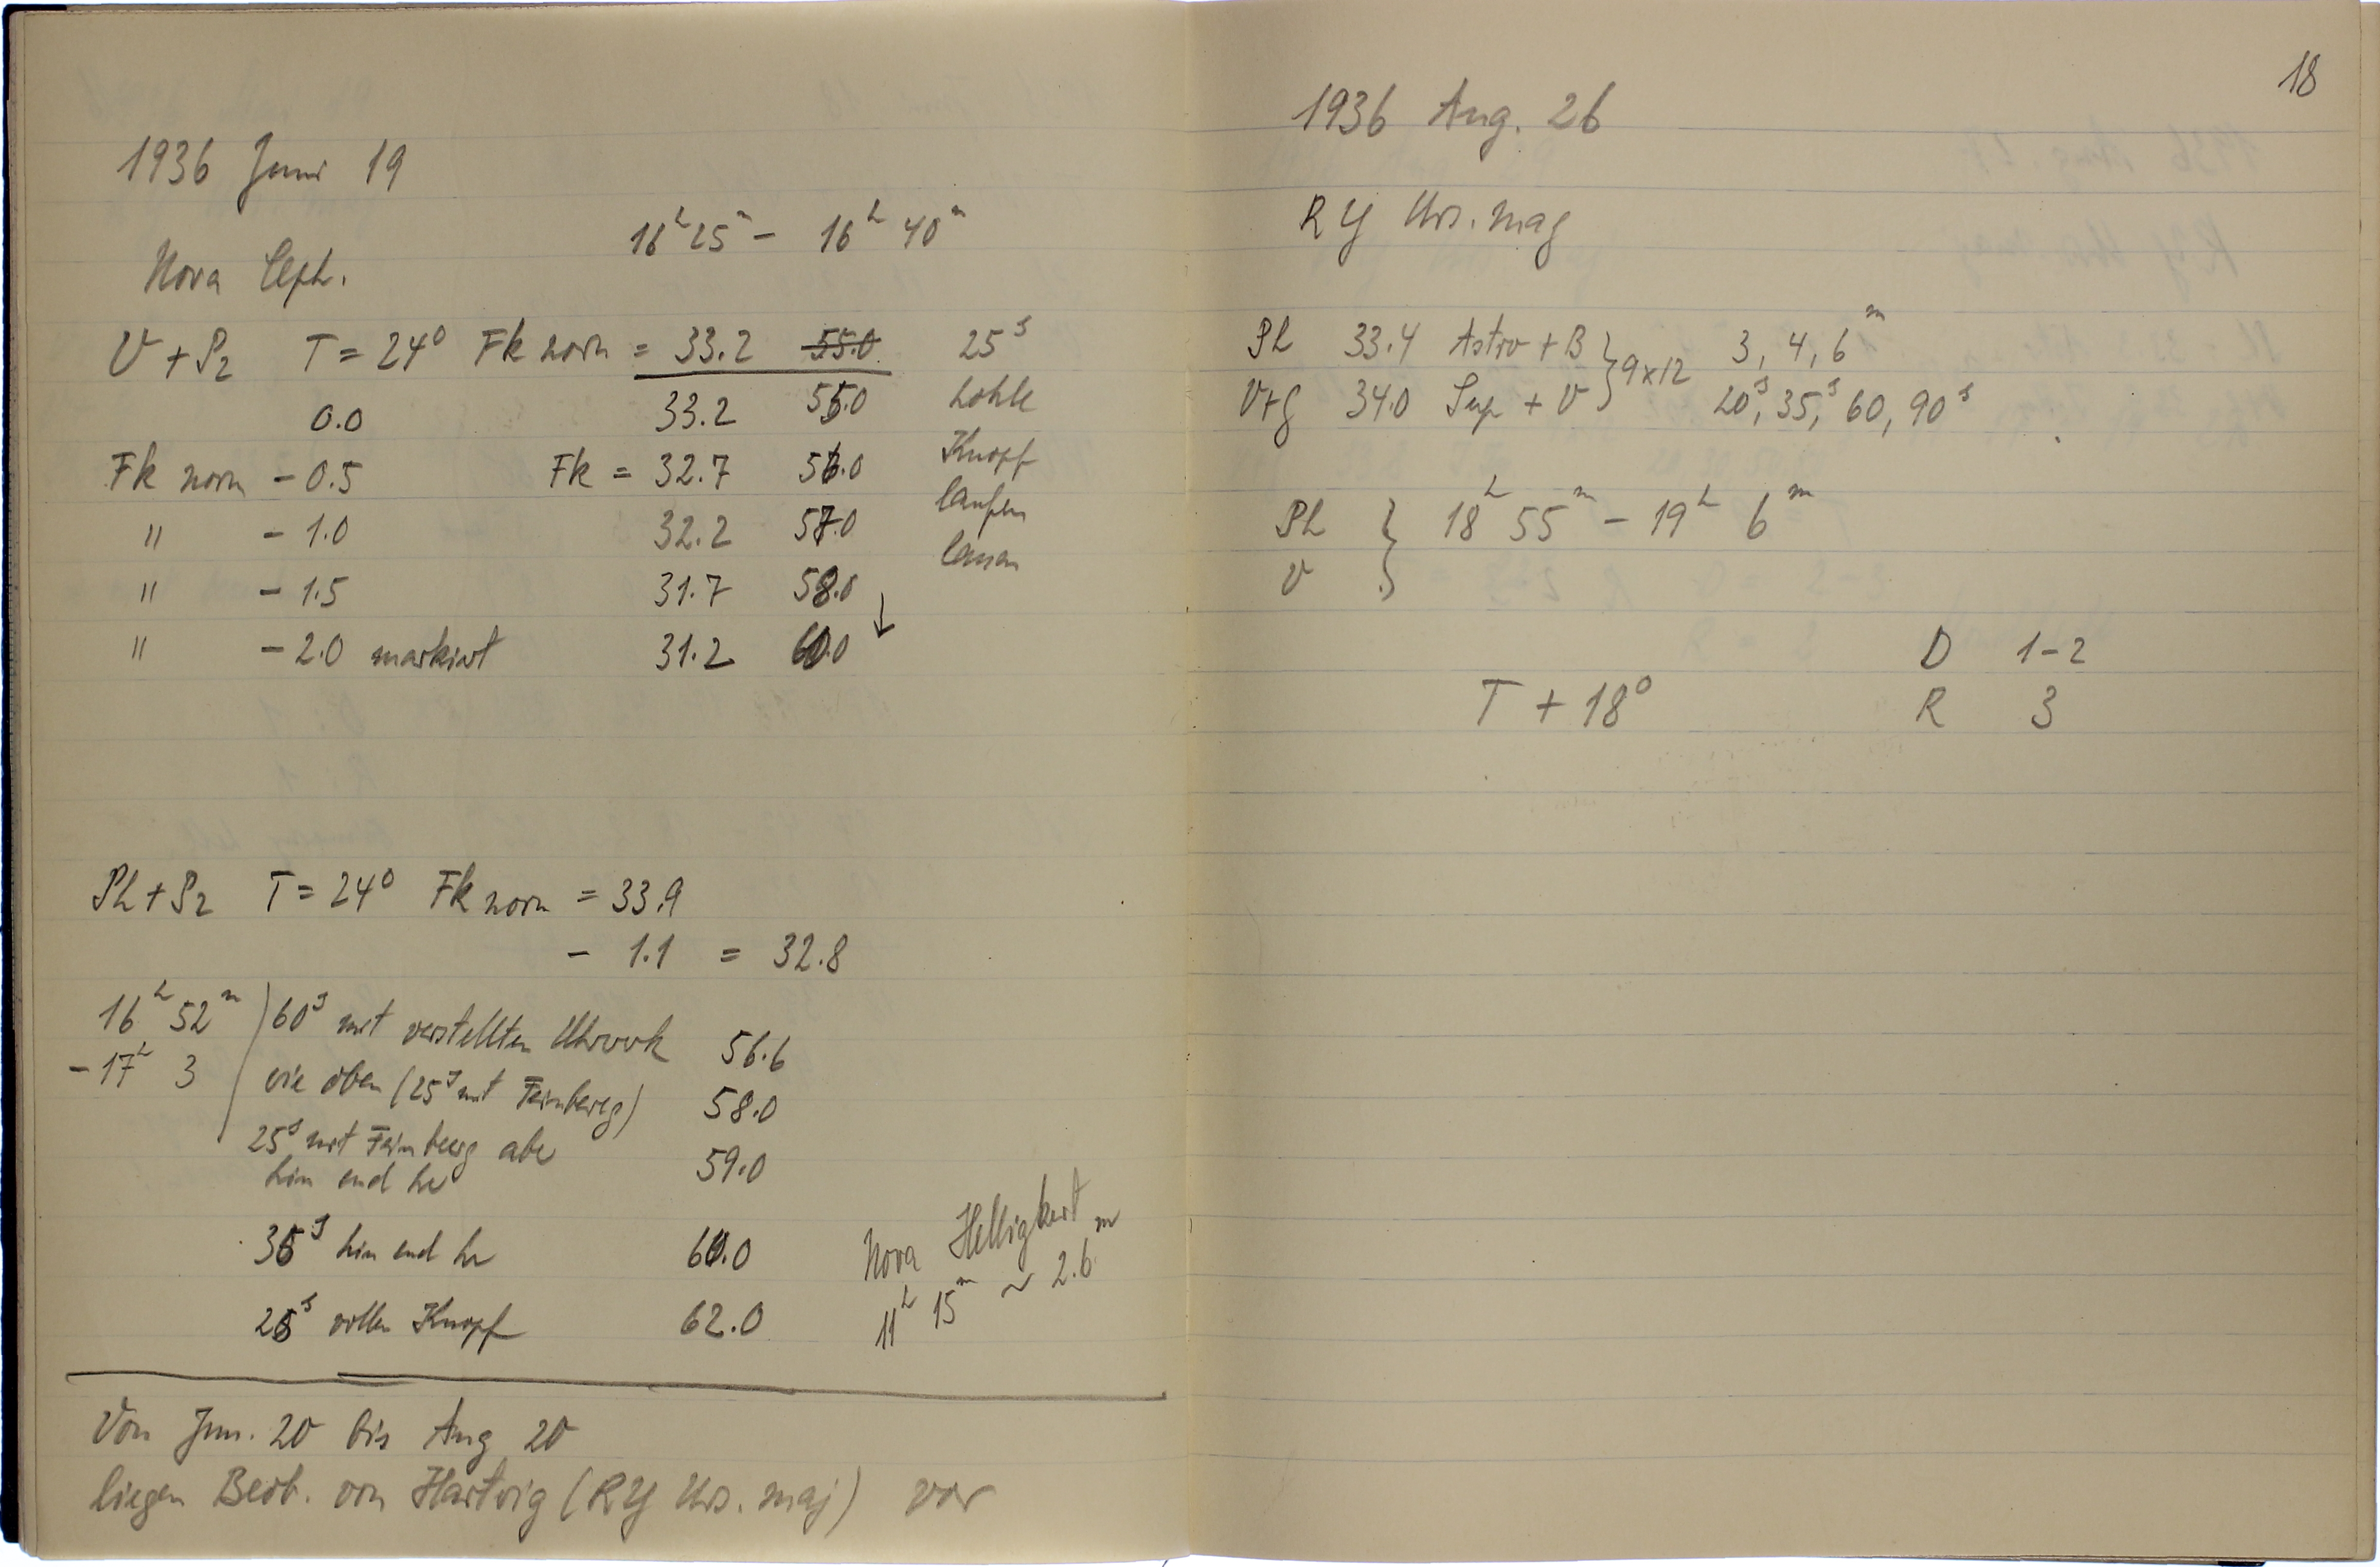 1936 Juni 19
Nova Ceph. 16h 25m – 16h 40m
V + P2 T = 24° Fk norm = 33.2 55.0 25s
0.0 33.2 55.0 hohle
Fk norm – 0.5 Fk = 32.7 56.0 Knopf
" – 1.0 32.2 57.0 laufen
" – 1.5 31.7 58.0 lassen
" – 2.0 markiert 31.2 60.0 ↓
Ph + P2 T = 24° Fk norm = 33.9
– 1.1 = 32.8
16h 52m 60s mit verstellten Uhrwerk 56.6
– 17h 3 wie oben (25s mit Feinbeweg) 58.0
25s mit Feinbewg aber 59.0
hin und her
35s hin und her 60.0
25s vollen Knopf 62.0
Nova Helligkeit
11h 15m ~ 2.6m
Von Jun. 20 bis Aug 20
liegen Beob. von Hartwig (RY Urs. maj) vor
18
1936 Aug. 26
RY Urs. mag
Ph 33.4 Astro + B } 9x12 3, 4, 6m
V+G 34.0 Sup + V 20s, 35s, 60, 90s
Ph } 18h 55m – 19h 6m
V
D 1–2
T + 18° R 3